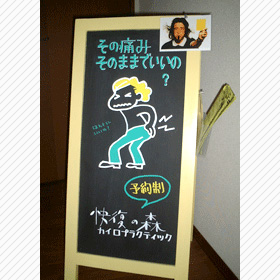 その痛み
そのままでいいの
?
ほんとに
いいの?
予約制
快復の森
カイロプラクティック